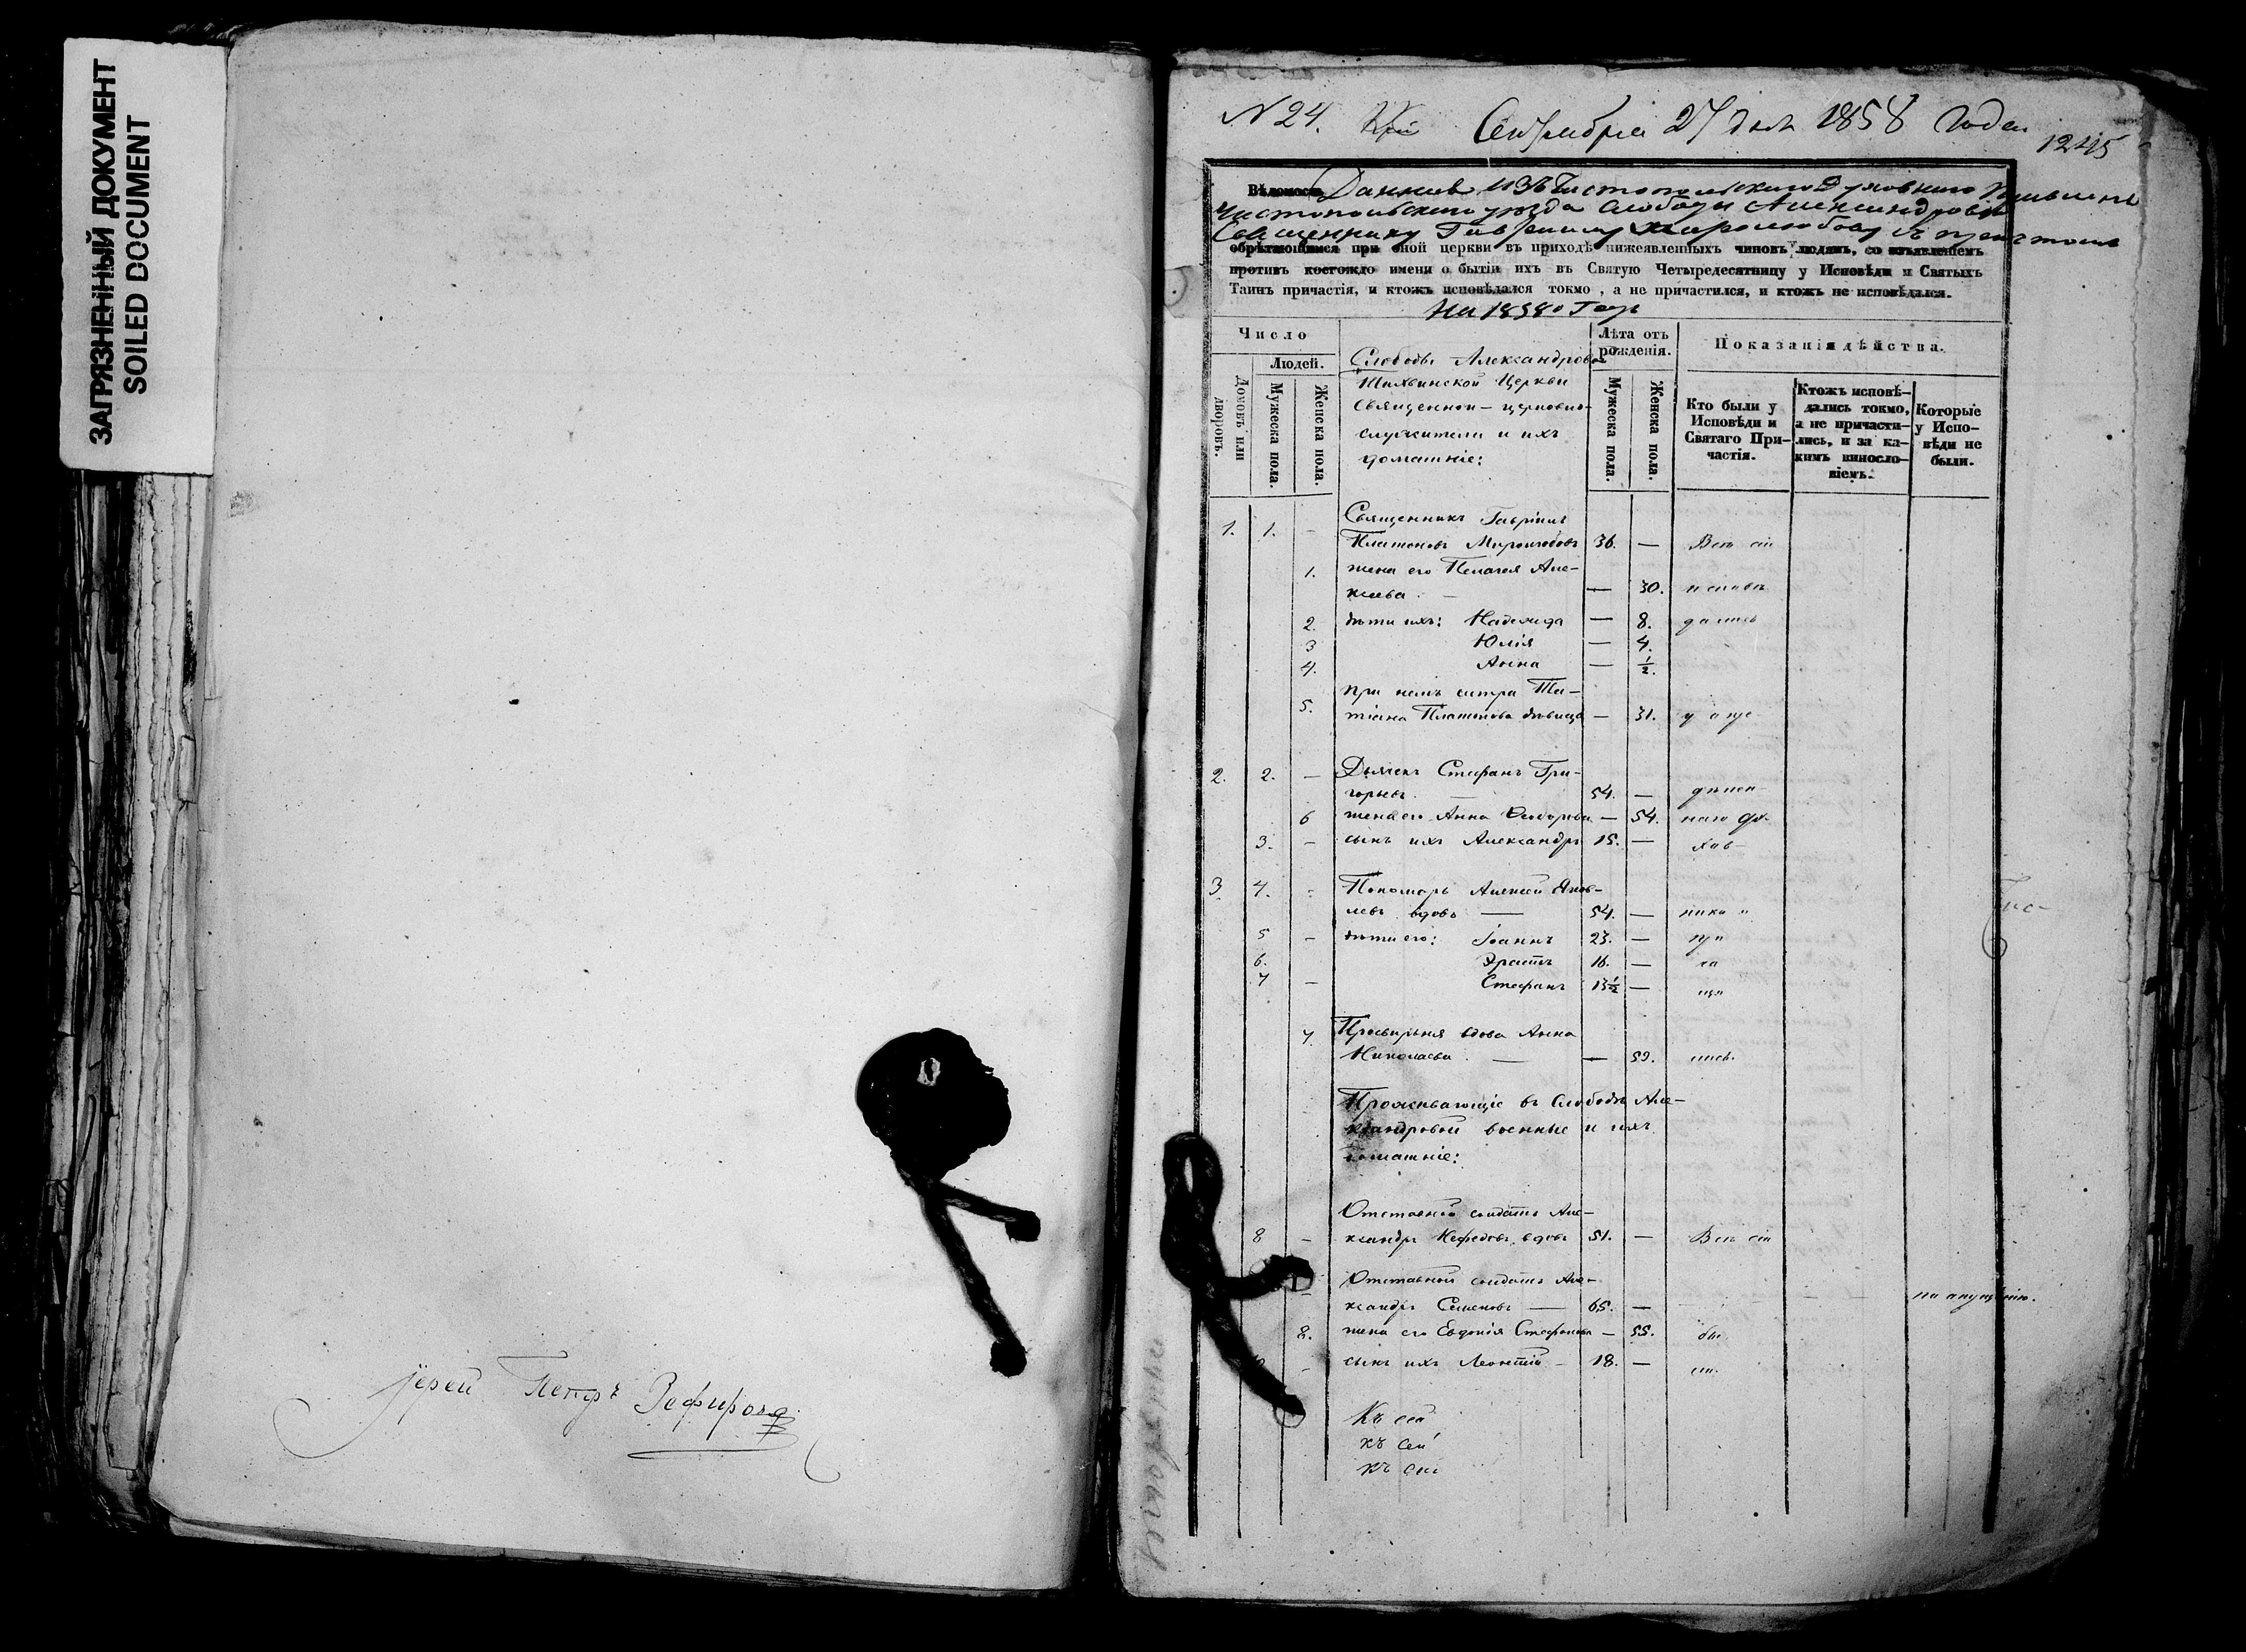 ЗАГРЯЗНЕННЫЙ ДОКУМЕНТ
SOILED DOCUMENT
Іерей Петръ Зефировъ
N 24. Сентября 27 дня 1858 Года
1245
Вѣдомость Данная изъ Чистопольскаго Духовнаго Правленія
Чистопольскаго уѣзда Слободы Александровой
Священнику Гавріилу Миролюбову
обрѣтающимся при оной церкви въ приходѣ нижеявленныхъ чиновъ людямъ, со изъявленіемъ
противъ коегождо имени о бытіи ихъ въ Святую Четыредесятницу у Исповѣди и Святыхъ
Таинъ причастія, и ктожъ исповѣдался токмо, а не причастился, и ктожъ не исповѣдался.
На 1858й Годъ
Число
Людей.
Домовъ или дворовъ.
Мужеска пола.
Женска пола.
Слободы Александровой
Тихвинской Церкви
Священно-церковно-
служители и ихъ
домашніе:
Лѣта отъ
рожденія.
Мужеска пола.
Женска пола.
Показанія дѣйства.
Кто были у
Исповѣди и
Святаго При-
частія.
Ктожъ исповѣ-
дались токмо,
а не причасти-
лись, и за ка-
кимъ виносло-
віемъ.
Которые
у Испо-
вѣди не
были.
Священникъ Гавріилъ
1. 1. – Платоновъ Миролюбовъ 36. — Всѣ сіи
1. жена его Пелагея Але-
ксѣева — 30. исповѣ
2. дѣти ихъ: Надежда — 8. дались
3 Юлія — 4.
4. Анна — ½.
при немъ сестра Та-
5. тіана Платонова дѣвица — 31.
2. 2. – Дьячекъ Стефанъ Гри-
горьевъ 54. —
6 жена его Анна Ѳеодорова — 54.
3. – сынъ ихъ Александръ 15. —
3 4. – Пономарь Алексѣй Яков-
левъ вдовъ — 54. —
5 – дѣти его: Іоаннъ 23. —
6. Эрастъ 16. —
7 – Стефанъ 13½ —
7. Просвирьня вдова Анна
Николаева — 59. лись.
Проживающіе въ Слободѣ Але-
ксандровой военные и ихъ
домашніе:
Отставной солдатъ Але-
8 – ксандръ Нефедовъ, вдовъ 51. — Всѣ сіи
Отставной солдатъ Але-
– ксандръ Семеновъ — 65. — по опущенію.
8. жена его Евдокія Стефанова — 55.
– сынъ ихъ Леонтій – 18. —
Къ сей
къ сей
къ сей